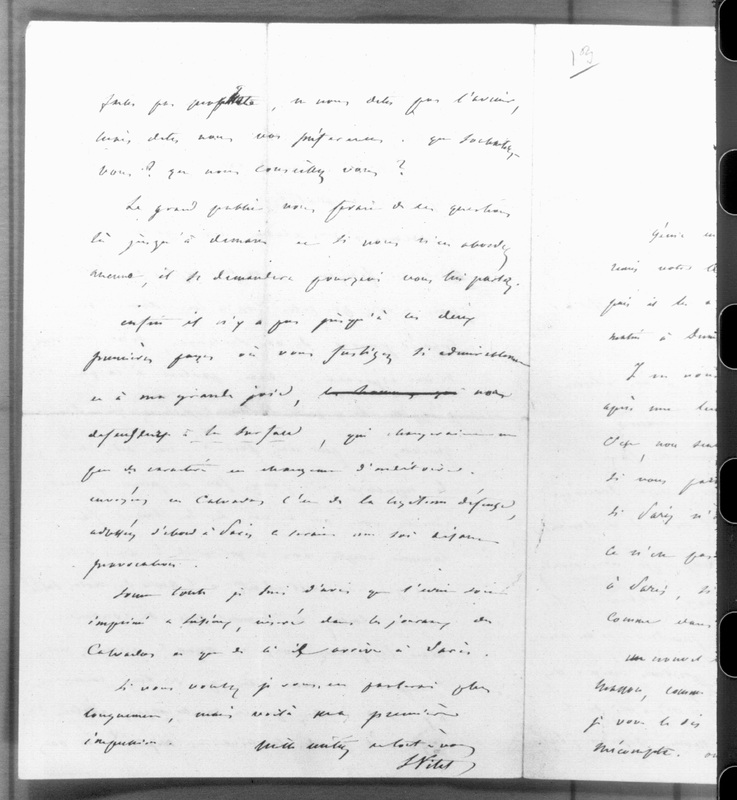 faites pas prophète, ne nous dites pas l'avenir,
mais dites nous vos préférences. que souhaitez
vous ? que nous conseillez vous ?
Le grand public vous ferait de ces questions
là jusqu'à demain et si vous n'en abordez
aucune, il se demandera pourquoi vous lui parlez.
enfin il n'y a pas jusqu'à ces deux
premières pages où vous justifiez si admirablement
et à ma grande joie, nos
défenseurs à la surface, qui changeraient un
peu de caractère en changeant d'auditoire.
envoyées en Calvados c'est de la légitime défense,
adressées d'abord à Paris ce serait un soi disant
provocation.
Somme toute je suis d'avis que l'écrit soit
imprimé à Lisieux, inséré dans les journaux du
Calvados et que de là il arrive à Paris.
Si vous voulez je vous en parlerai plus
longuement, mais voilà ma première
impression. mille amitiés et tout à vous
L Vitet
1
Génie
mais votre
puis il les a
à
J
après une
C'est, vous
si vous
si Paris n'
ce n'est pas
à Paris, si
comme dans
un nouvel
comme
je vous le dis
mécompte.